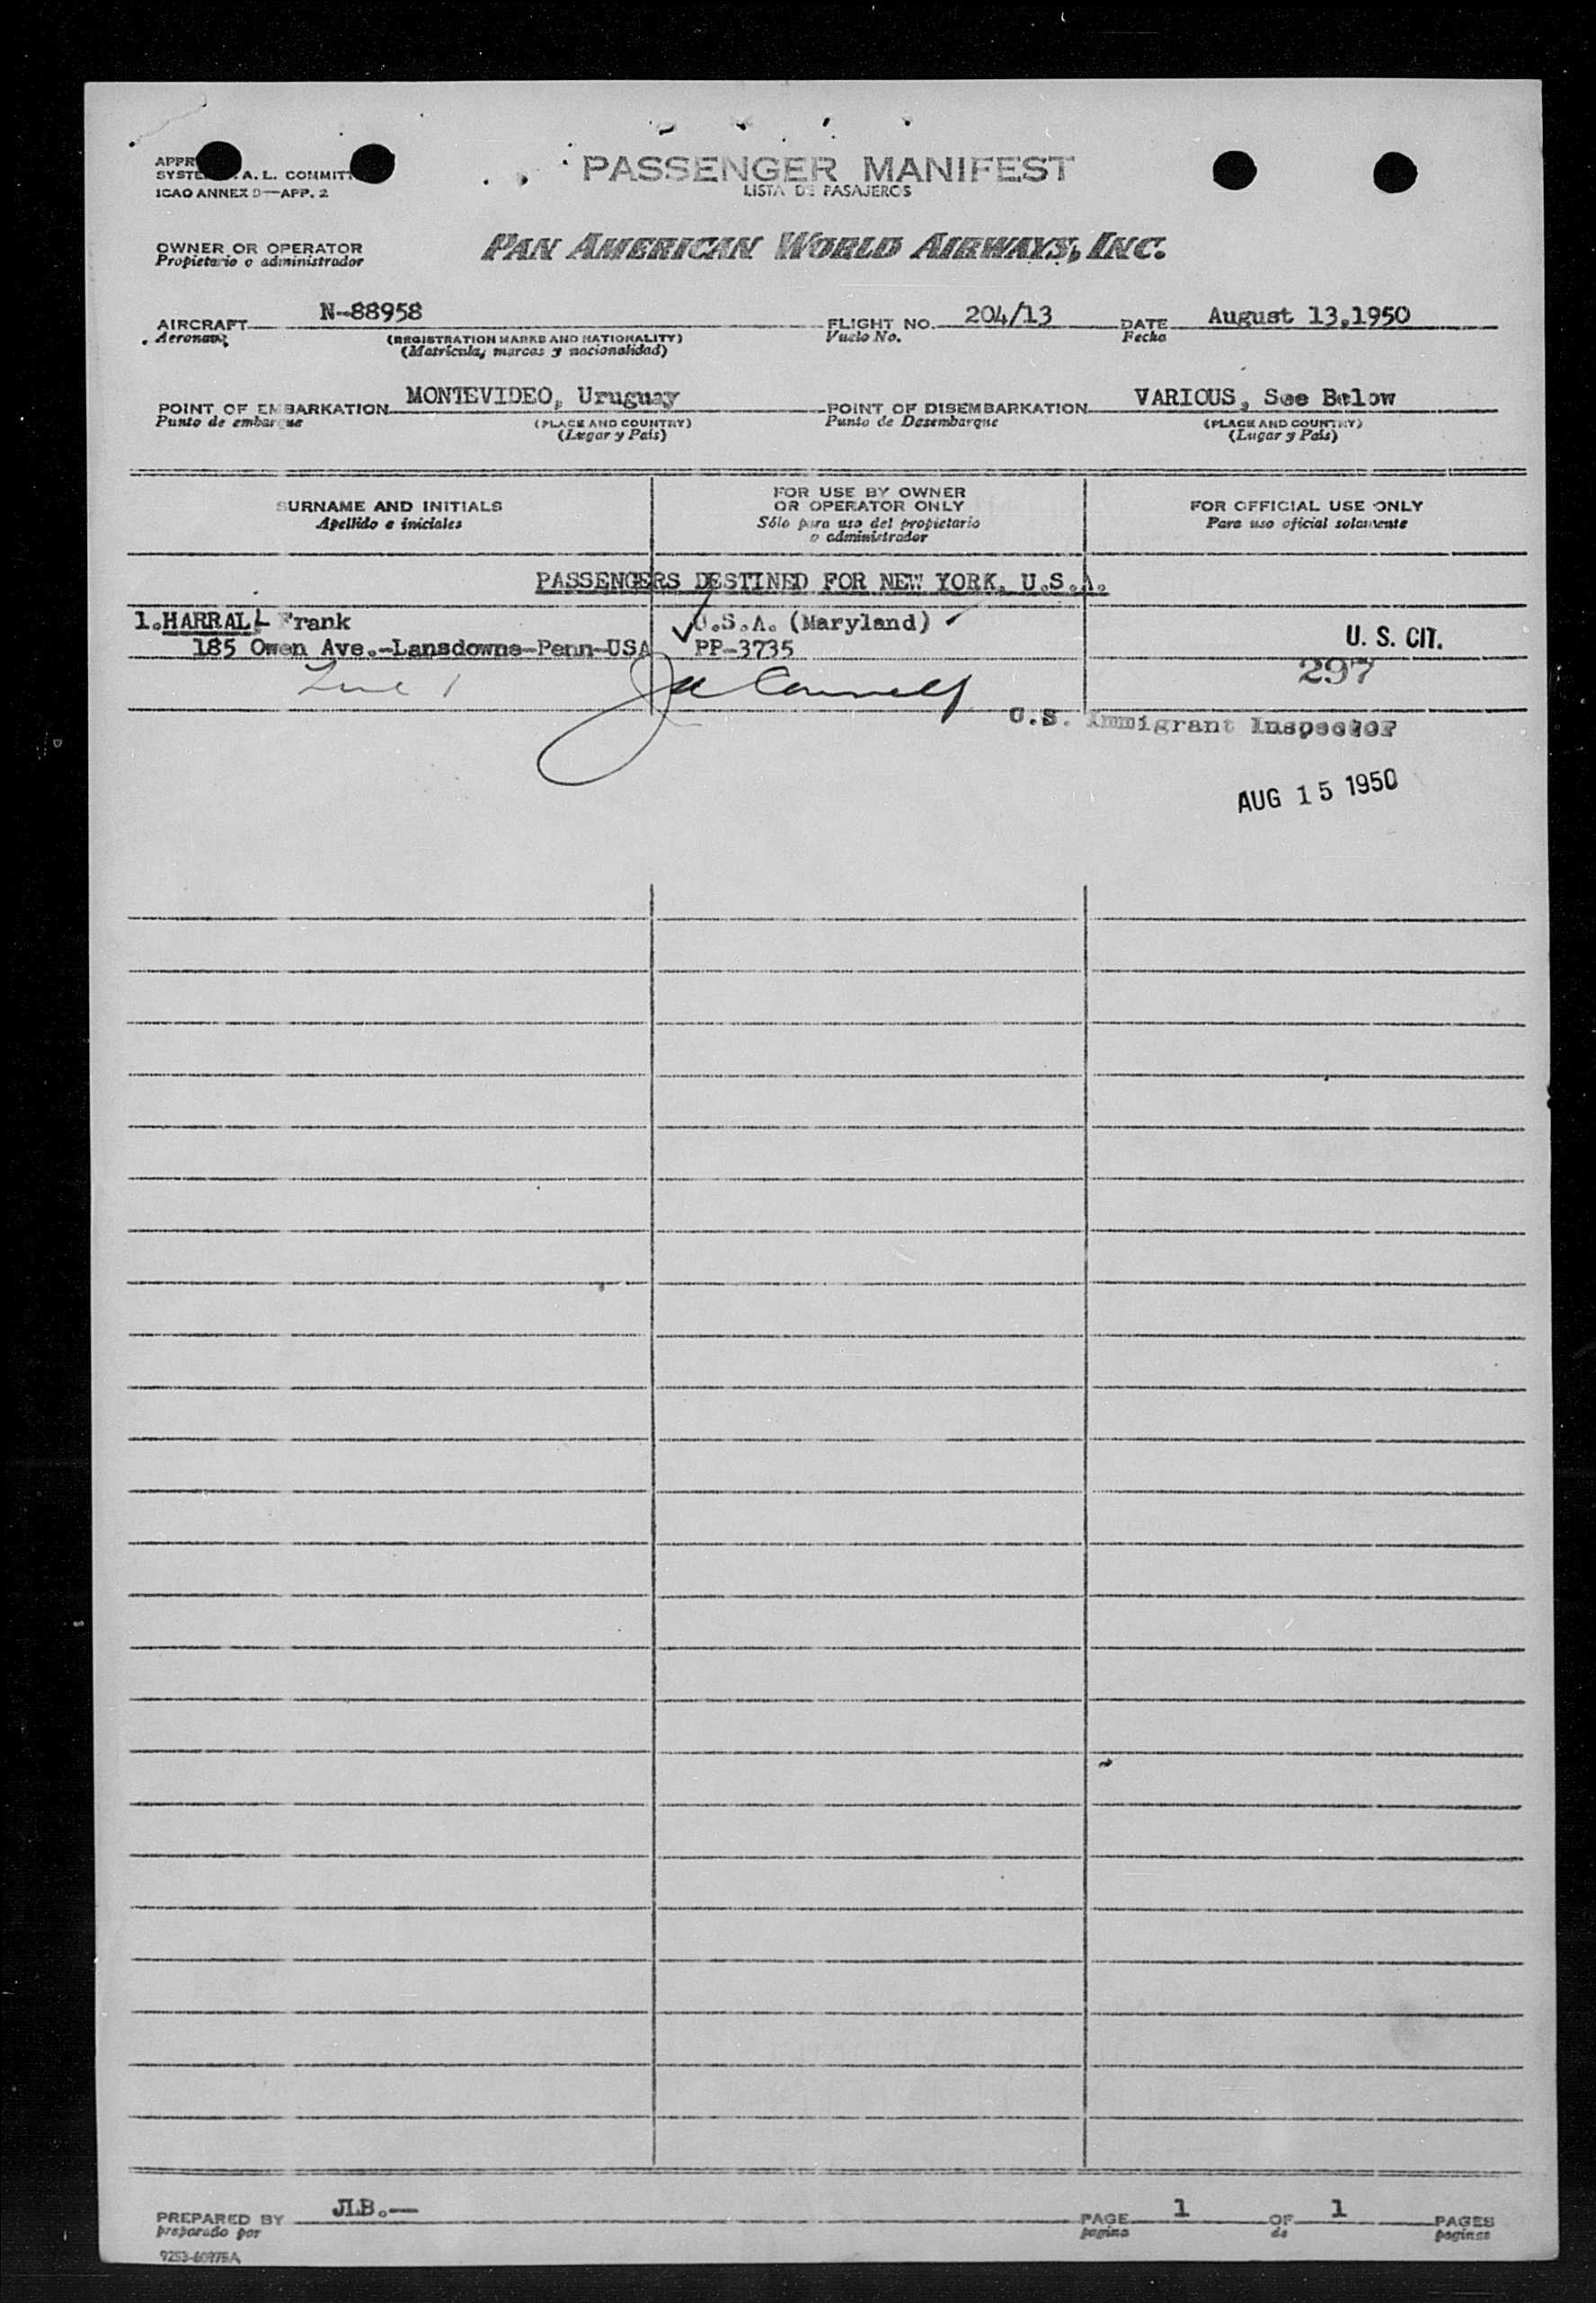 APPR
SYSTE A. L. COMMITT
ICAO ANNEX 9—APP. 2
PASSENGER MANIFEST
LISTA DE PASAJEROS
OWNER OR OPERATOR
Propietario o administrador
PAN AMERICAN WORLD AIRWAYS, INC.
AIRCRAFT N-88958 FLIGHT NO. 204/13 DATE August 13,1950
Aeronave (REGISTRATION MARKS AND NATIONALITY) Vuelo No. Fecha
(Matrícula, marcas y nacionalidad)
POINT OF EMBARKATION MONTEVIDEO, Uruguay POINT OF DISEMBARKATION VARIOUS, See Below
Punto de embarque (PLACE AND COUNTRY) Punto de Desembarque (PLACE AND COUNTRY)
(Lugar y País) (Lugar y País)
SURNAME AND INITIALS
Apellido e iniciales
FOR USE BY OWNER
OR OPERATOR ONLY
Sólo para uso del propietario
o administrador
FOR OFFICIAL USE ONLY
Para uso oficial solamente
PASSENGERS DESTINED FOR NEW YORK, U.S.A.
1.HARRALL Frank U.S.A. (Maryland)
185 Owen Ave.-Lansdowne-Penn-USA PP-3735 U. S. CIT.
297
Line 1
U.S. Immigrant Inspector
AUG 15 1950
PREPARED BY JLB.— PAGE 1 OF 1 PAGES
preparado por pagina de paginas